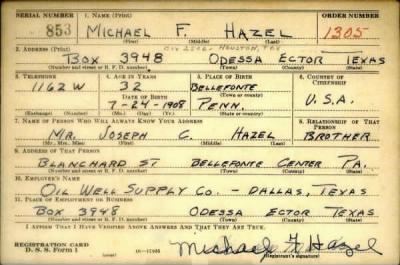 SERIAL NUMBER 1. NAME (Print) ORDER NUMBER
853 MICHAEL F. HAZEL 1305
(First) (Middle) (Last)
2. ADDRESS (Print) HOUSTON, TEX
BOX 3948 ODESSA ECTOR TEXAS
(Number and street or R. F. D. number) (Town) (County) (State)
3. TELEPHONE 4. AGE IN YEARS 5. PLACE OF BIRTH 6. COUNTRY OF CITIZENSHIP
1162W 32 BELLEFONTE
DATE OF BIRTH (Town or county)
7-24-1908 PENN. U.S.A.
(Exchange) (Number) (Mo.) (Day) (Yr.) (State or country)
7. NAME OF PERSON WHO WILL ALWAYS KNOW YOUR ADDRESS 8. RELATIONSHIP OF THAT PERSON
MR. JOSEPH C. HAZEL BROTHER
(Mr., Mrs., Miss) (First) (Middle) (Last)
9. ADDRESS OF THAT PERSON
BLANCHARD ST BELLEFONTE CENTER PA.
(Number and street or R. F. D. number) (Town) (County) (State)
10. EMPLOYER'S NAME
OIL WELL SUPPLY CO. - DALLAS, TEXAS
11. PLACE OF EMPLOYMENT OR BUSINESS
BOX 3948 ODESSA ECTOR TEXAS
(Number and street or R. F. D. number) (Town) (County) (State)
I AFFIRM THAT I HAVE VERIFIED ABOVE ANSWERS AND THAT THEY ARE TRUE.
REGISTRATION CARD
D. S. S. Form 1 Michael F. Hazel
(Registrant's signature)